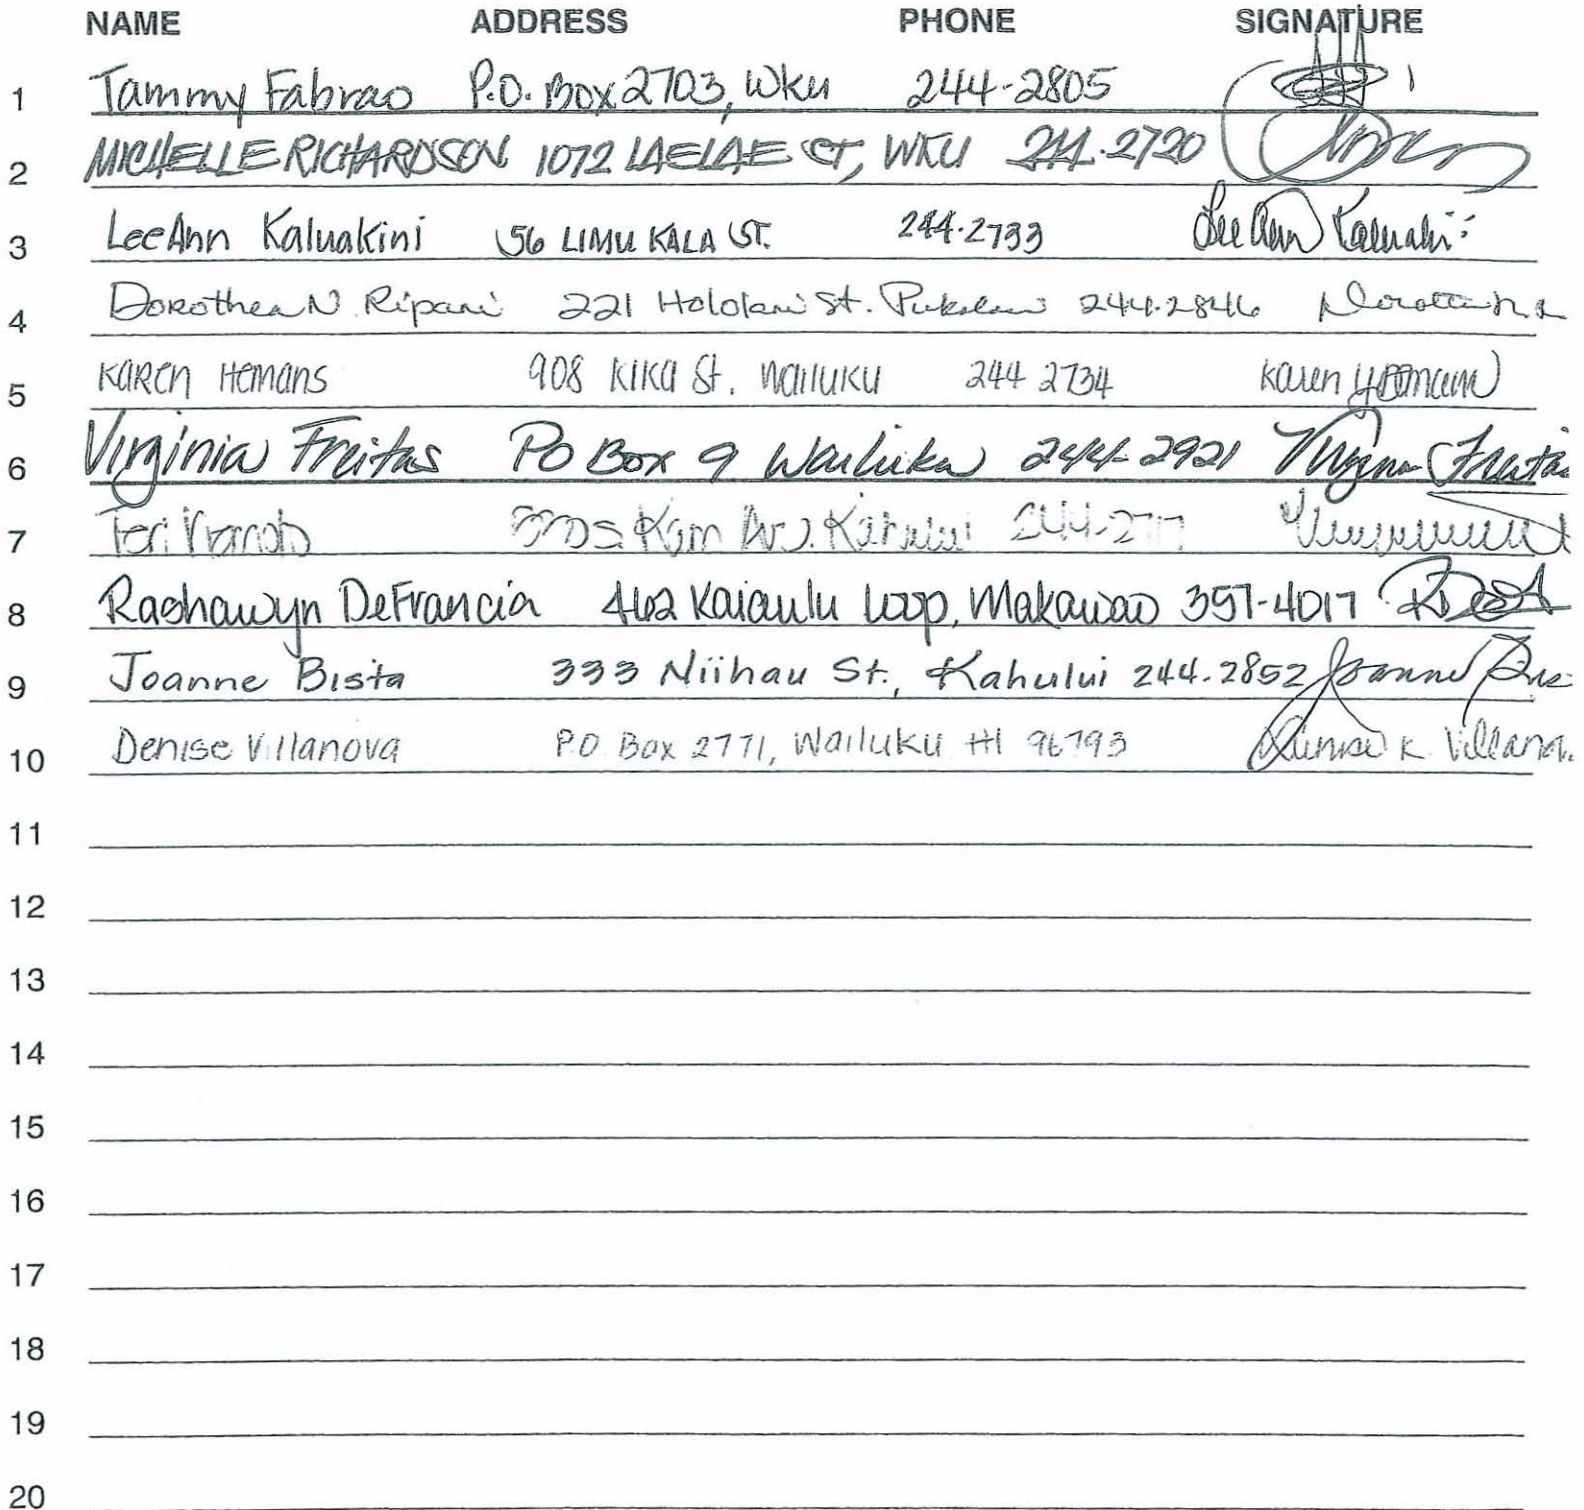 NAME ADDRESS PHONE SIGNATURE
1 Tammy Fabrao P.O. Box 2703, Wku 244-2805
2 MICHELLE RICHARDSON 1072 LAELAE CT, WKU 244-2720
3 LeeAnn Kaluakini 56 LIMU KALA ST. 244-2733 LeeAnn
4 Dorothea N. Ripani 221 Hololani St. Pukalani 244-2846
5 Karen Hemans 908 Kika St. Wailuku 244 2734 Karen
6 Virginia Freitas PO Box 9 Wailuku 244-2921 Virginia Freitas
7 Teri Kam Av. Kahului
8 Rashawyn DeFrancia 462 Kaiaulu Loop, Makawao 357-4017
9 Joanne Bista 333 Niihau St., Kahului 244-2852 Joanne
10 Denise Villanova P.O Box 2771, Wailuku HI 96793 Denise K.
11
12
13
14
15
16
17
18
19
20